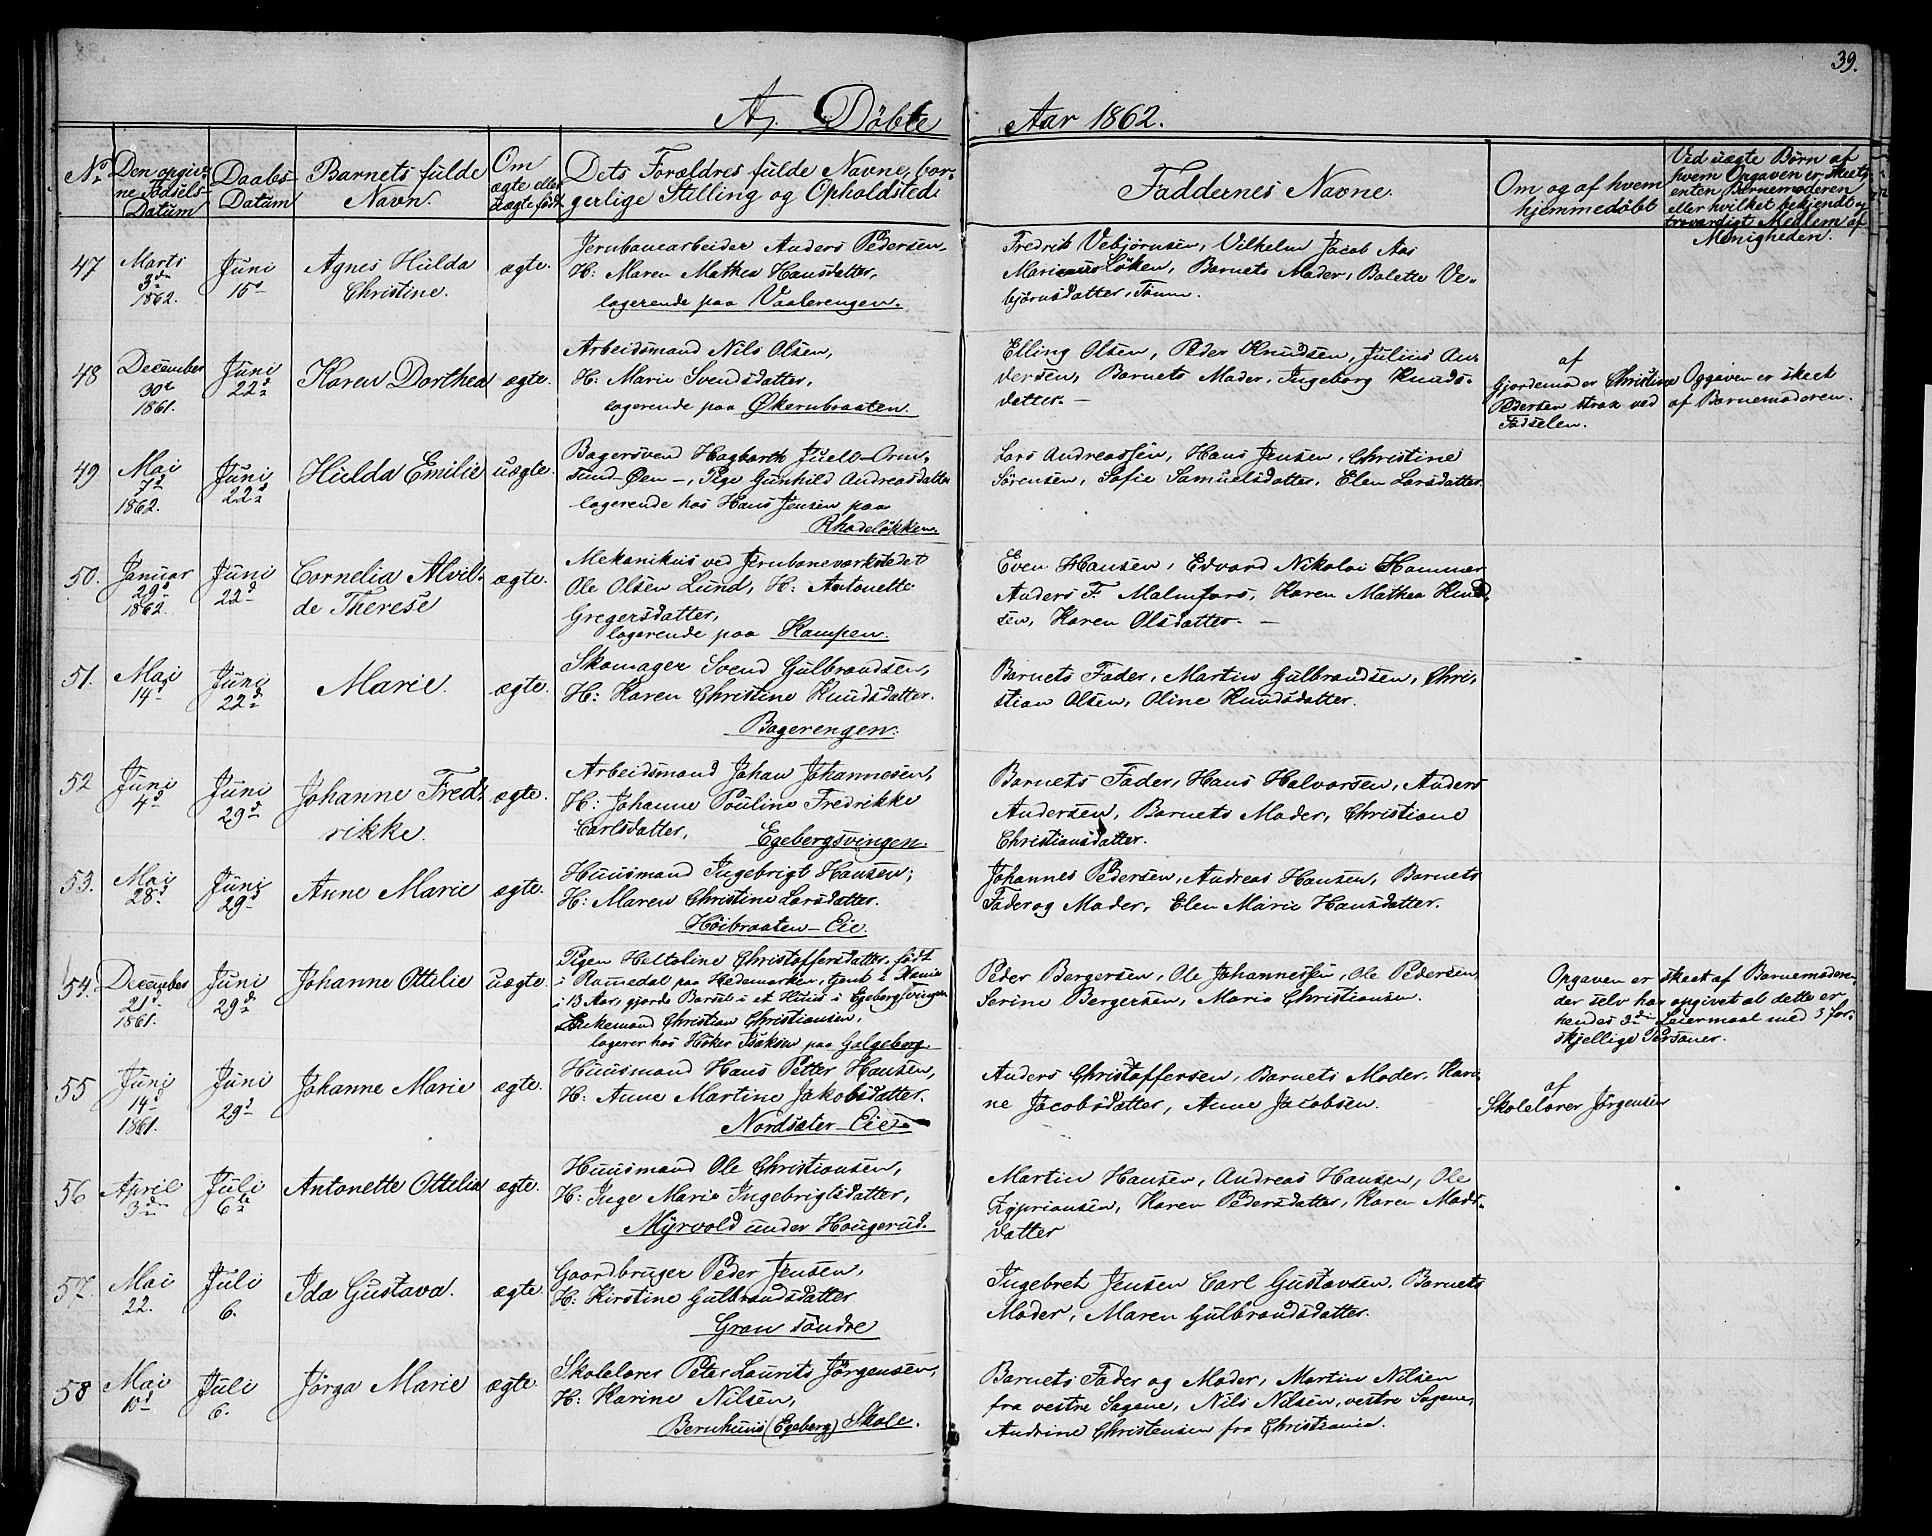 39.
A, Döbte Aar 1862.
No.
Den opgiv-
ne Födsels-
Datum
Daabs-
Datum
Barnets fulde
Navn.
Om
ægte eller
uægte født
Dets Forældres fulde Navne, bor-
gerlige Stilling og Opholdsted.
Faddernes Navne.
Om og af hvem
hjemmedøbt
Ved uægte Børn af
hvem Opgaven er skeet,
enten Barnemoderen
eller hvilket bekjendt og
troværdigt Medlem af
Menigheden.
47
Marts
3die
1862.
Juni
15de
Agnes Hulda
Christine.
ægte.
Jernbanearbeider Anders Pedersen.
H: Maren Mathea Hansdatter,
logerende paa Vaalerengen.
Fredrik Vebjørnsen, Vilhelm Jacob Aas
Marienus Löken, Barnets Moder, Bolette Ve-
björnsdatter, Tönn.
48
December
30te
1861.
Juni
22de
Karen Dorthea
ægte.
Arbeidsmand Nils Olsen,
H: Marie Svendsdatter,
logerende paa Økernbraaten.
Elling Olsen, Peder Knudsen, Julius An-
dersen, Barnets Moder, Ingeborg Knuds-
datter. —
af
Gjordemoder Christine
Pedersen strax ved
Fødselen.
Opgaven er skeet
af Barnemoderen.
49
Mai
7de
1862.
Juni
22de
Hulda Emilie
uægte.
Bagersvend Hagbarth Juell—Orm-
sund—Øen —, Pige Gunhild Andreasdatter
logerende hos Hans Jensen paa
Rhodeløkken.
Lars Andreassen, Hans Jensen, Christine
Sörensen, Sofie Samuelsdatter, Elen Larsdatter
50.
Januar
29de
1862.
Juni
22de
Cornelia Alvil-
de Therese
ægte.
Mekanikus ved Jernbaneværkstedet
Ole Olsen Lund, H: Antonette
Gregersdatter,
logerende paa Kampen.
Even Hansen, Edvard Nikolai Hammer
Anders F. Malmfors, Karen Mathea Knud-
sen, Karen Olsdatter. —
51.
Mai
14de
Juni
22de
Marie.
ægte.
Skomager Svend Gulbrandsen,
H: Karen Christine Knudsdatter.
Bagerengen.
Barnets Fader, Martin Gulbrandsen, Chri-
stian Olsen, Oline Knudsdatter.
52
Juni
4de
Juni
29de
Johanne Fred-
rikke.
ægte.
Arbeidsmand Johan Johannesen,
H: Johanne Pouline Fredrikke
Carlsdatter,
Egebergsvingen.
Barnets Fader, Hans Halvorsen, Anders
Andersen, Barnets Moder, Christiane
Christiansdatter.
53.
Mai
28de
Juni
29de
Anne Marie
ægte.
Huusmand Ingebrigt Hansen,
H: Maren Christine Larsdatter.
Høibraaten—Eie.
Johannes Pedersen, Andreas Hansen, Barnets
Fader og Moder, Elen Marie Hansdatter.
54.
December
21de
1861.
Juni
29de
Johanne Ottilie
uægte.
Pigen Heltoline Christoffersdatter, født
i Romedal paa Hedemarken, tjent i Xania
i 13 Aar, gjorde Barsel i et Huus i Egebergsvingen
Enkemand Christian Christiansen,
logerer hos Höker Isaksen paa Galgeberg.
Peder Bergersen, Ole Johannessen, Ole Pedersen
Serine Bergersen, Marie Christiansen.
Opgaven er skeet af Barnemoderen
der selv har opgivet at dette er
hendes 3die Leiermaal med 3 for-
skjellige Personer.
55
Juni
14de
1861.
Juni
29de
Johanne Marie
ægte.
Huusmand Hans Petter Hansen,
H: Anne Martine Jakobsdatter.
Nordsæter—Eie.
Anders Christoffersen, Barnets Moder, Kari-
ne Jacobsdatter, Anne Jacobsen.
af
Skolelærer Jørgensen
56
April
3die
Juli
6te
Antonette Ottilia
ægte.
Huusmand Ole Christiansen,
H: Inge Marie Ingebrigtsdatter,
Myrvold under Hougerud.
Martin Hansen, Andreas Hansen, Ole
Zypriansen, Karen Pedersdatter, Karen Mads-
datter
57.
Mai
22.
Juli
6.
Ida Gustava.
ægte.
Gaardbruger Peder Jensen,
H: Kirstine Gulbrandsdatter
Gran söndre
Ingebret Jensen Carl Gustavsen, Barnets
Moder, Maren Gulbrandsdatter.
58
Mai
10de
Juli
6.
Jörga Marie
ægte.
Skolelærer Peter Laurits Jörgensen,
H: Karine Nilsen,
Bernhuus (Egeberg) Skole.
Barnets Fader og Moder, Martin Nilsen
fra vestre Sagene, Nils Nilsen, vestre Sagene,
Andrine Christensen fra Christiania.